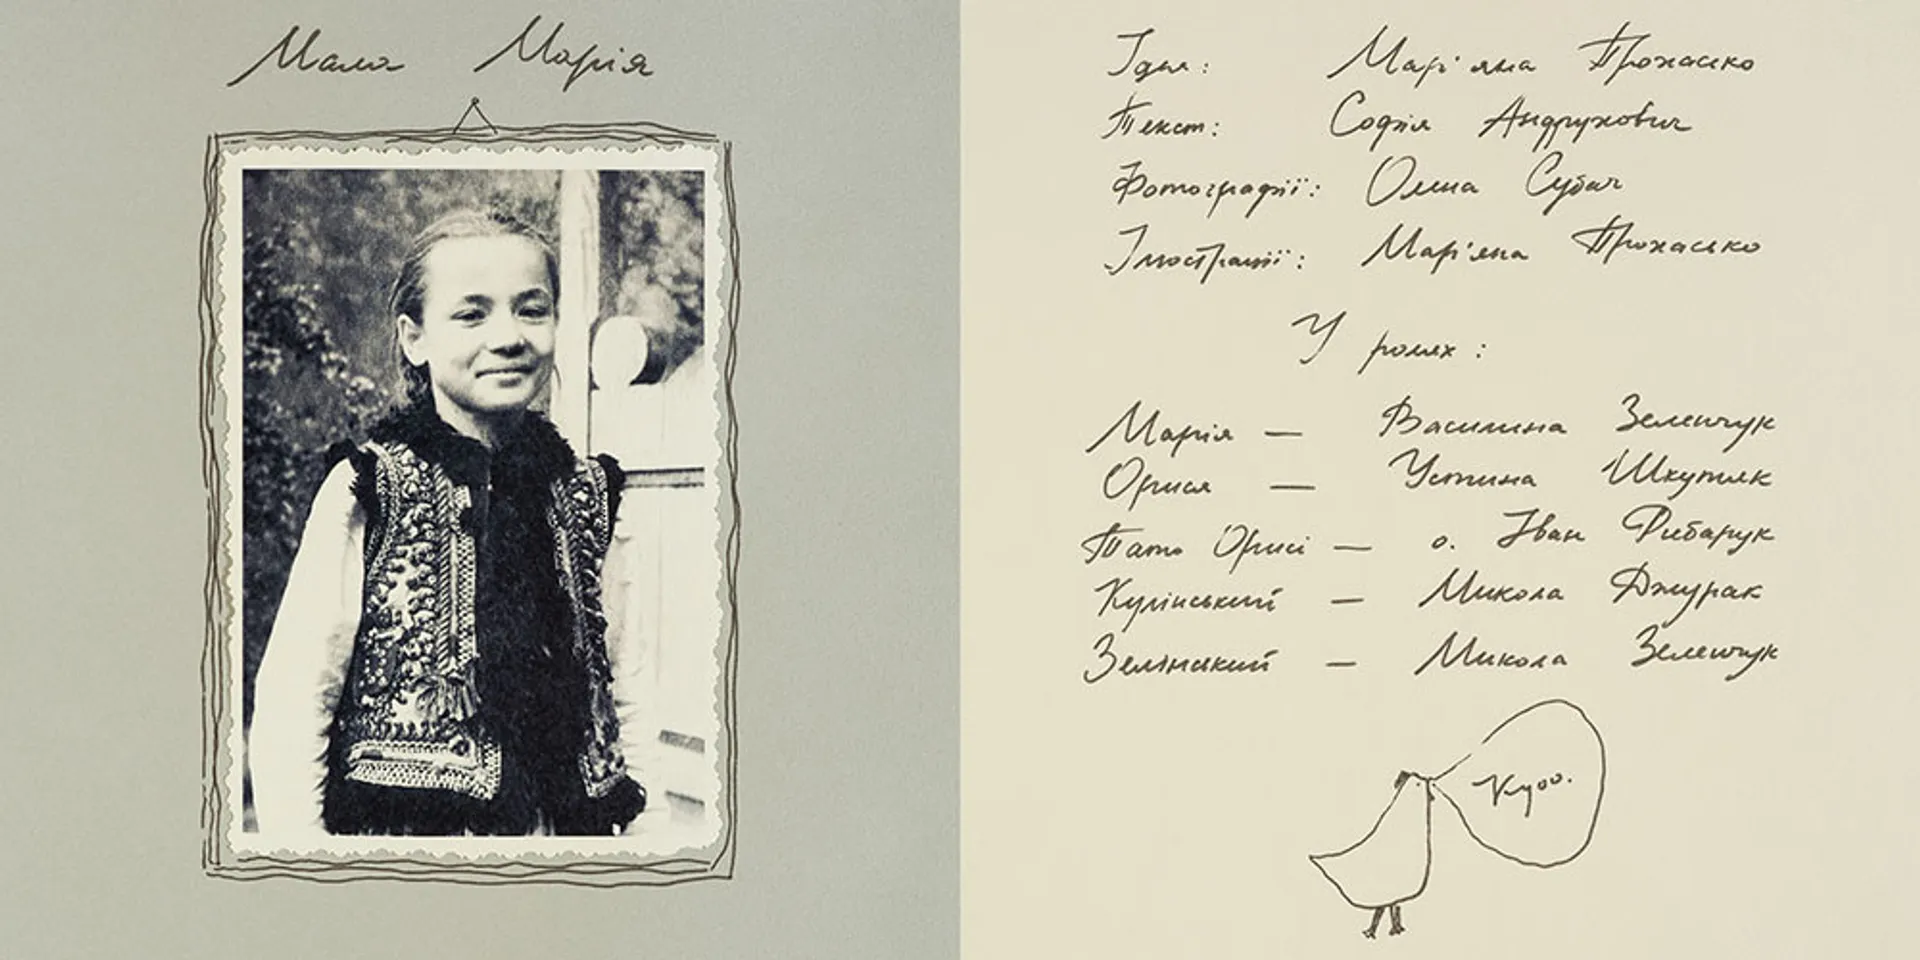 Мала Марія
Ідея: Мар'яна Прохасько
Текст: Софія Андрухович
Фотографії: Олена Субач
Ілюстрації: Мар'яна Прохасько
У ролях:
Марія — Василина Зеленчук
Орися — Устина Шкутяк
Тато Орисі — о. Іван Рибарук
Кулінський — Микола Джурак
Зелінський — Микола Зеленчук
Куоо.